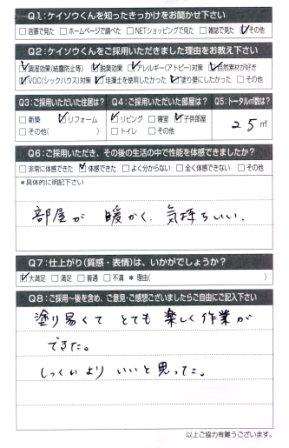 Q1:ケイソウくんを知ったきっかけをお聞かせ下さい
□店番で見た □ホームページで調べた □NETショッピングで見た □雑誌で見た ☑その他
Q2:ケイソウくんをご採用いただきました理由をお教え下さい
☑調湿効果(結露防止等) ☑脱臭効果 ☑アレルギー(アトピー)対策 ☑自然素材が好き
☑VOC(シックハウス)対策 ☑珪藻土を使用したかった ☑塗り壁にしたかった □その他
Q3:ご採用いただいた住居は? Q4:ご採用いただいた部屋は? Q5:トータル㎡数は?
□新築 ☑リフォーム ☑リビング □寝室 ☑子供部屋 25㎡
□その他( ) □トイレ □その他
Q6:ご採用いただき、その後の生活の中で性能を体感できましたか?
□非常に体感できた ☑体感できた □よく分からない □全く体感できない □その他
*具体的に明記下さい
部屋が 暖かく、気持ちいい。
Q7:仕上がり(質感・表情)は、いかがでしょうか?
☑大満足 □満足 □普通 □不満 * 理由( )
Q8:ご採用~後を含め、ご意見・ご感想ございましたらご自由にご記入下さい
塗り易くて とても 楽しく作業が
できた。
しっくいより いいと思った。
以上ご協力有難うございます。